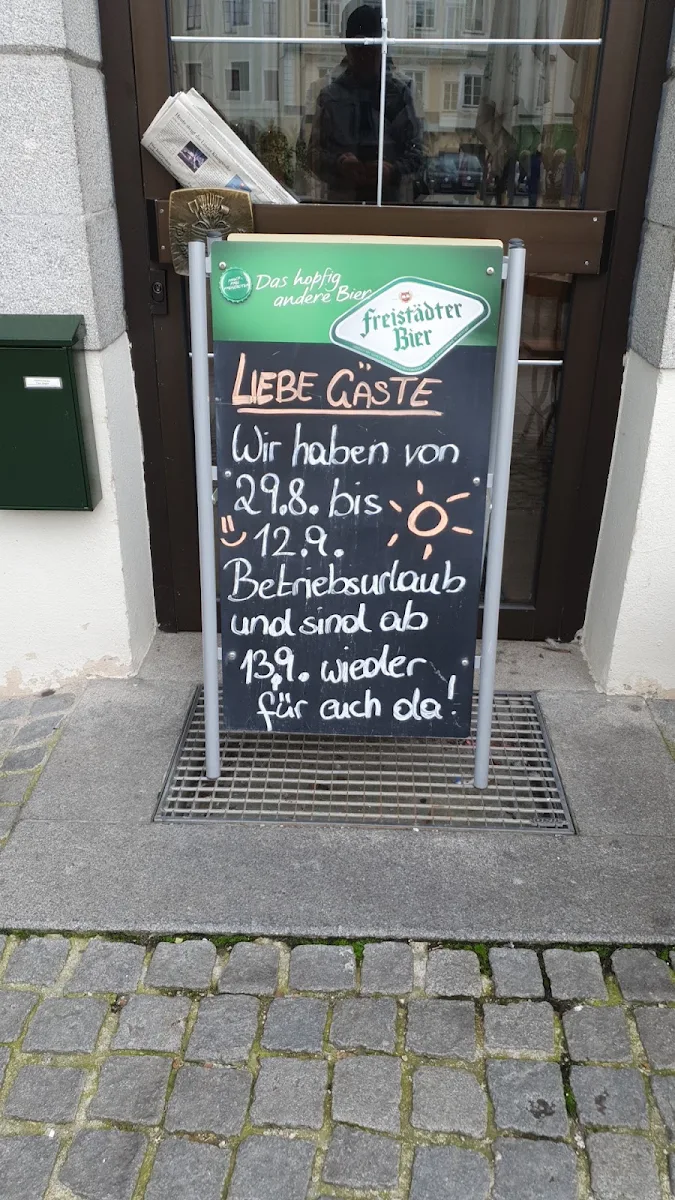 Das hopfig
andere Bier
Freistädter
Bier
LIEBE GÄSTE
Wir haben von
29.8. bis
12.9.
Betriebsurlaub
und sind ab
13.9. wieder
für euch da!